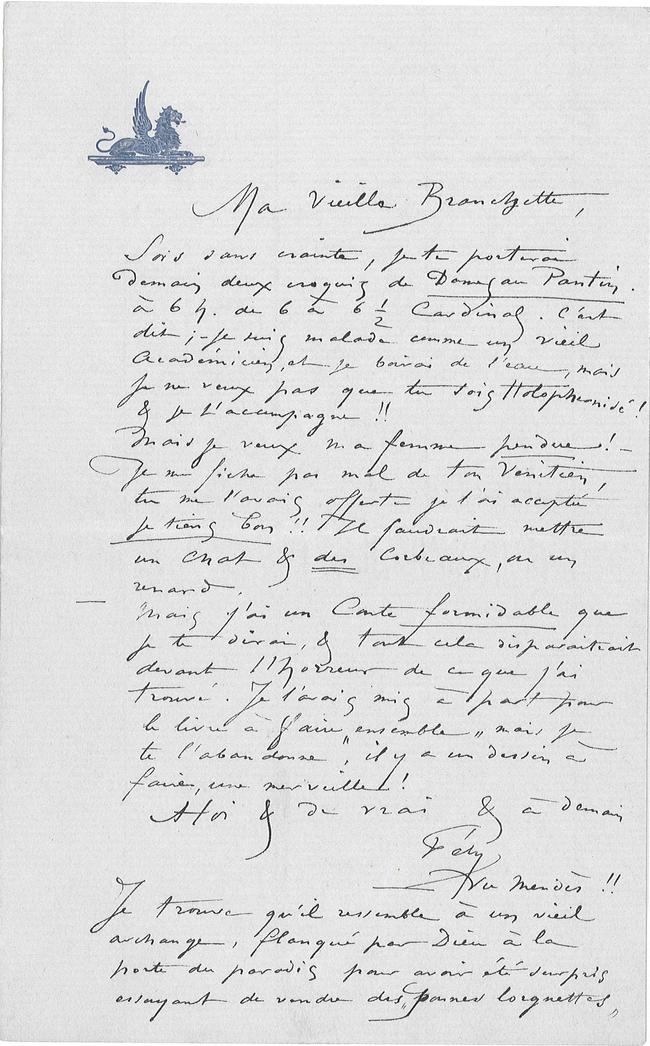 Ma vieille Branchette,
Sois sans crainte, je te porterai
demain deux croquis de
à 6 h. de 6 à 6 1/2 Cardinal. C'est
dit ; - je suis malade comme un vieil
Académicien, et je boirai de l'eau, mais
je ne veux pas que tu sois Holophernisé !
& je t'accompagne !!
Mais je veux ma femme pendue ! -
Je me fiche pas mal de ton Vénitien,
tu me l'avais offerte je l'ai acceptée
je tiens bon !! Il faudrait mettre
un chat & des Corbeaux, ou un
renard.
— Mais j'ai un Conte formidable que
je te dirai, & tout cela disparaitrait
devant l'horreur de ce que j'ai
trouvé. Je l'avais mis à part pour
le livre à faire „ensemble„ mais je
te l'abandonne, il y a un dessin à
faire, une merveille !
A toi & de vrai & à demain
Fély
Vu Mendès !!
Je trouve qu'il ressemble à un vieil
archange, flanqué par Dieu à la
porte du paradis pour avoir été surpris
essayant de vendre des „bonnes lorgnettes„